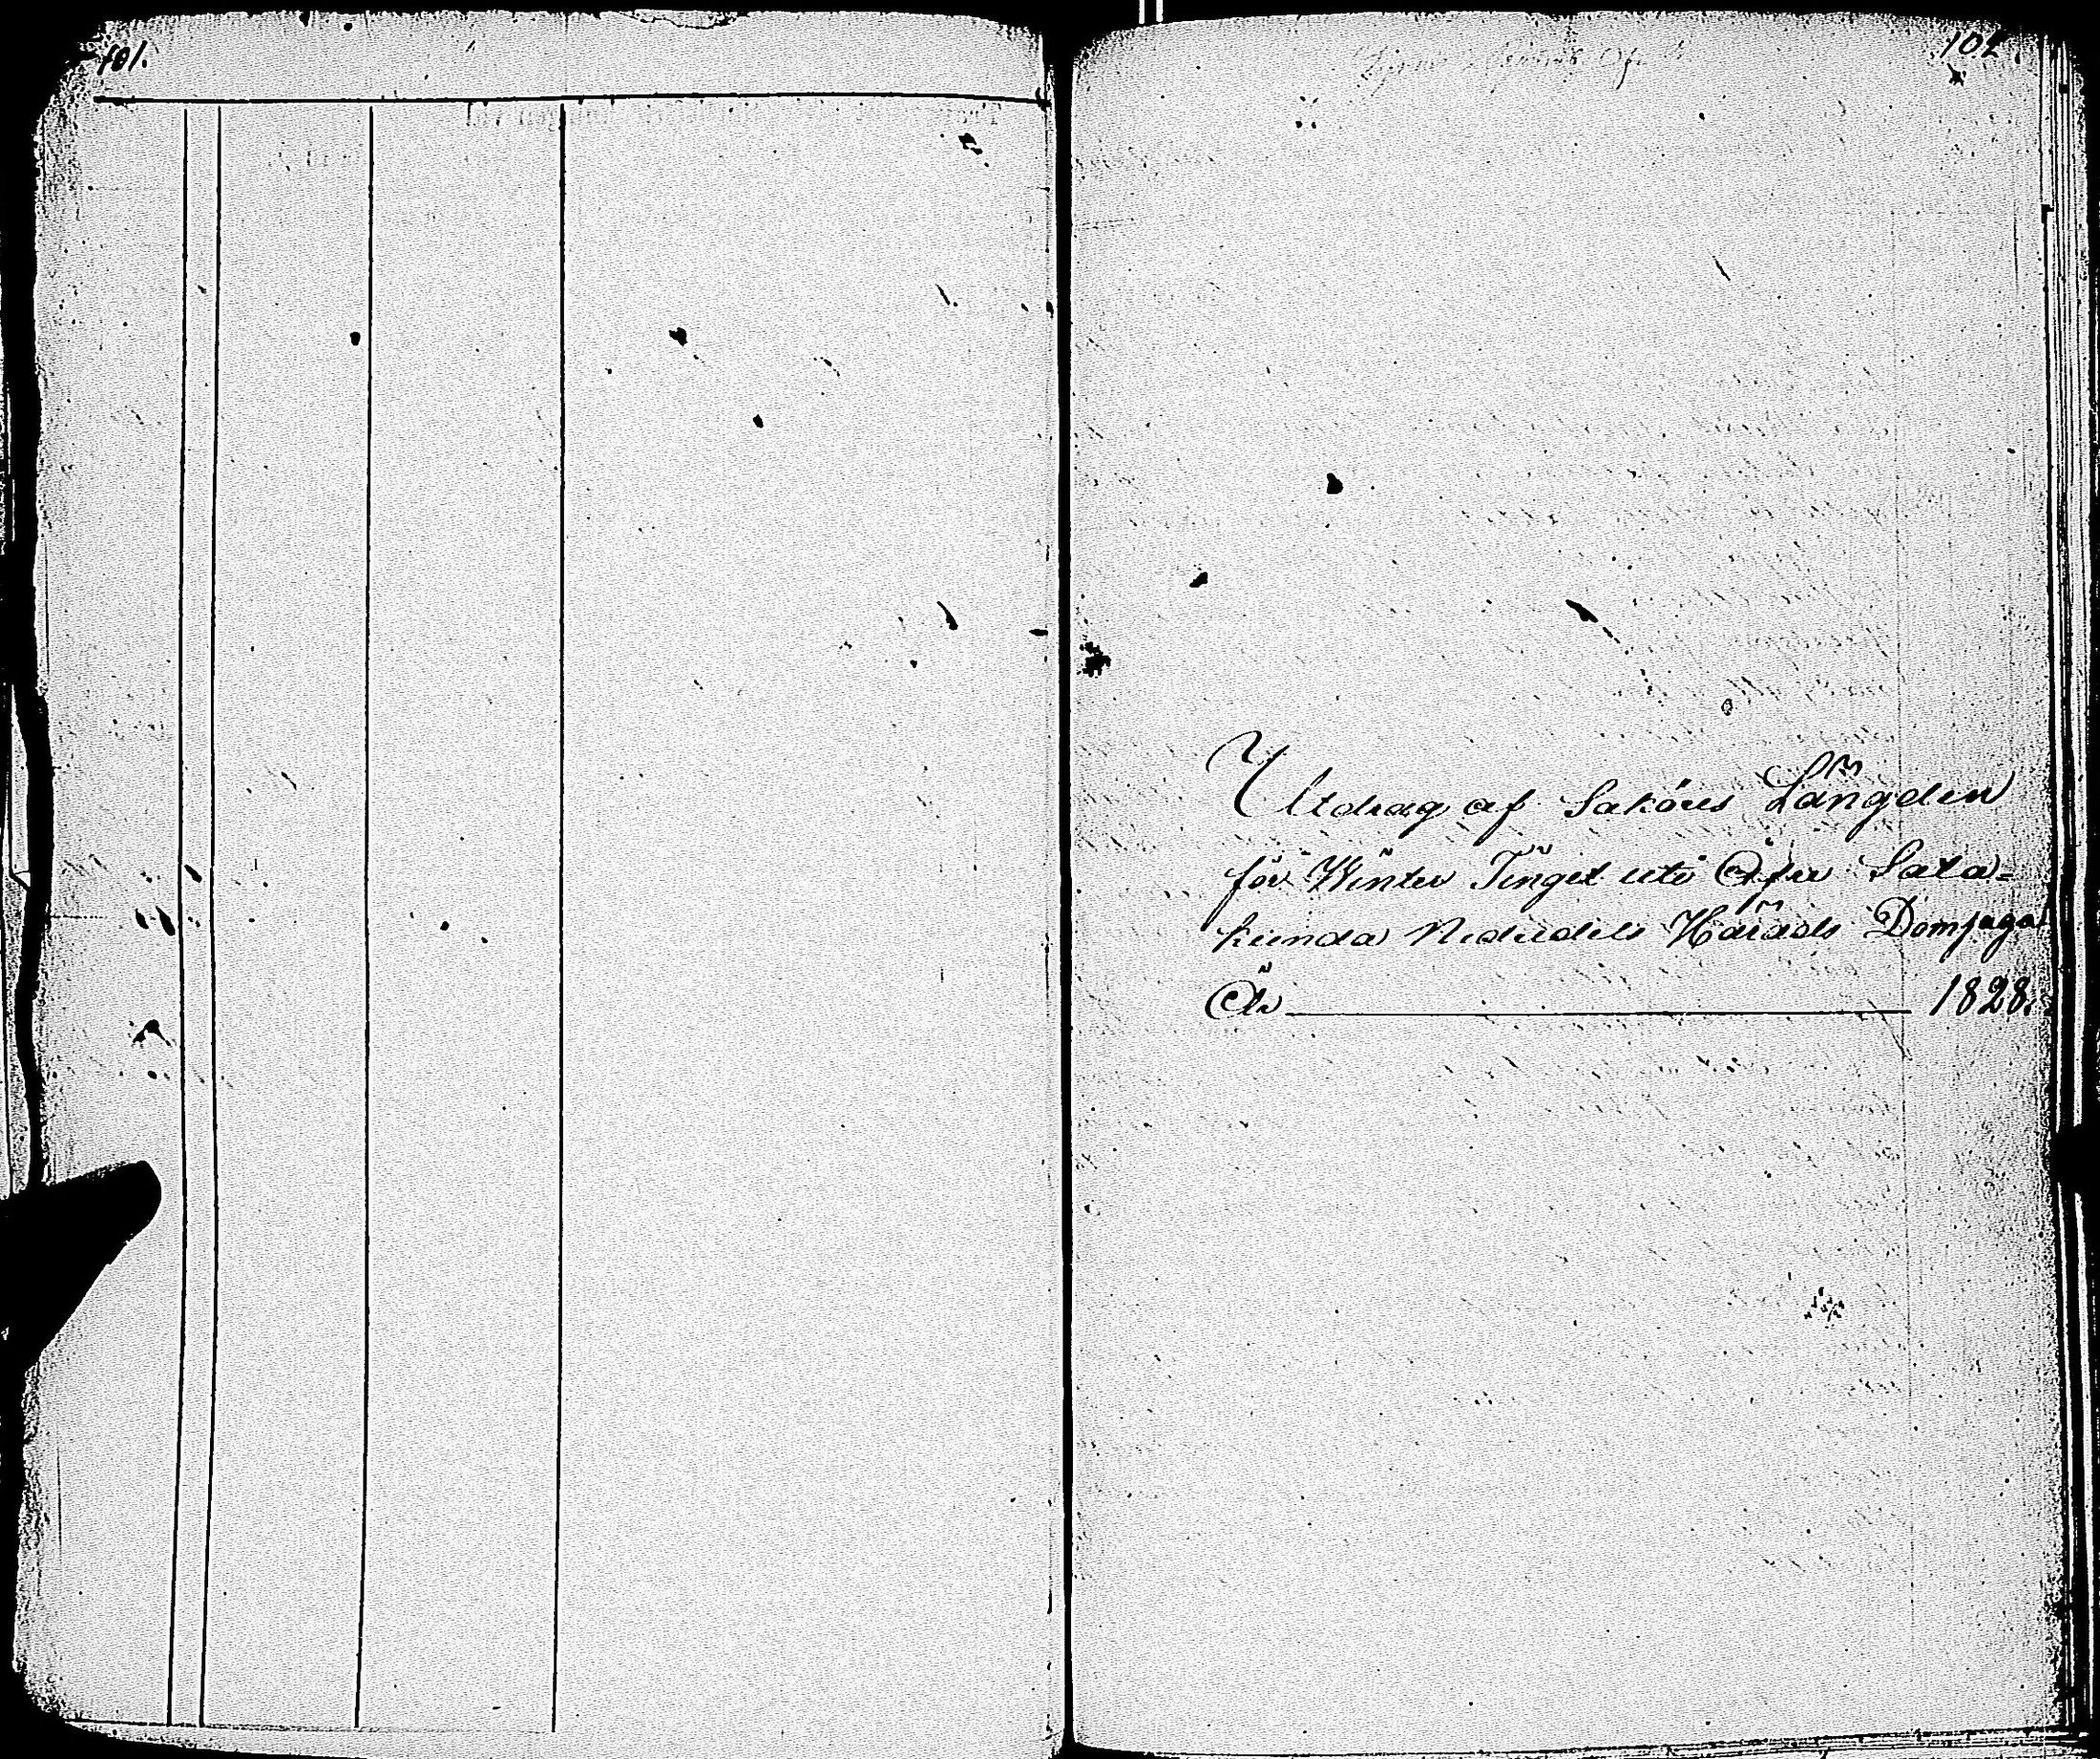 101.
102
Utdrag af Saköres Längden
för Winter Tinget uti Öfre Sata=
kunda Nedredels Härads Domsaga
År 1828.